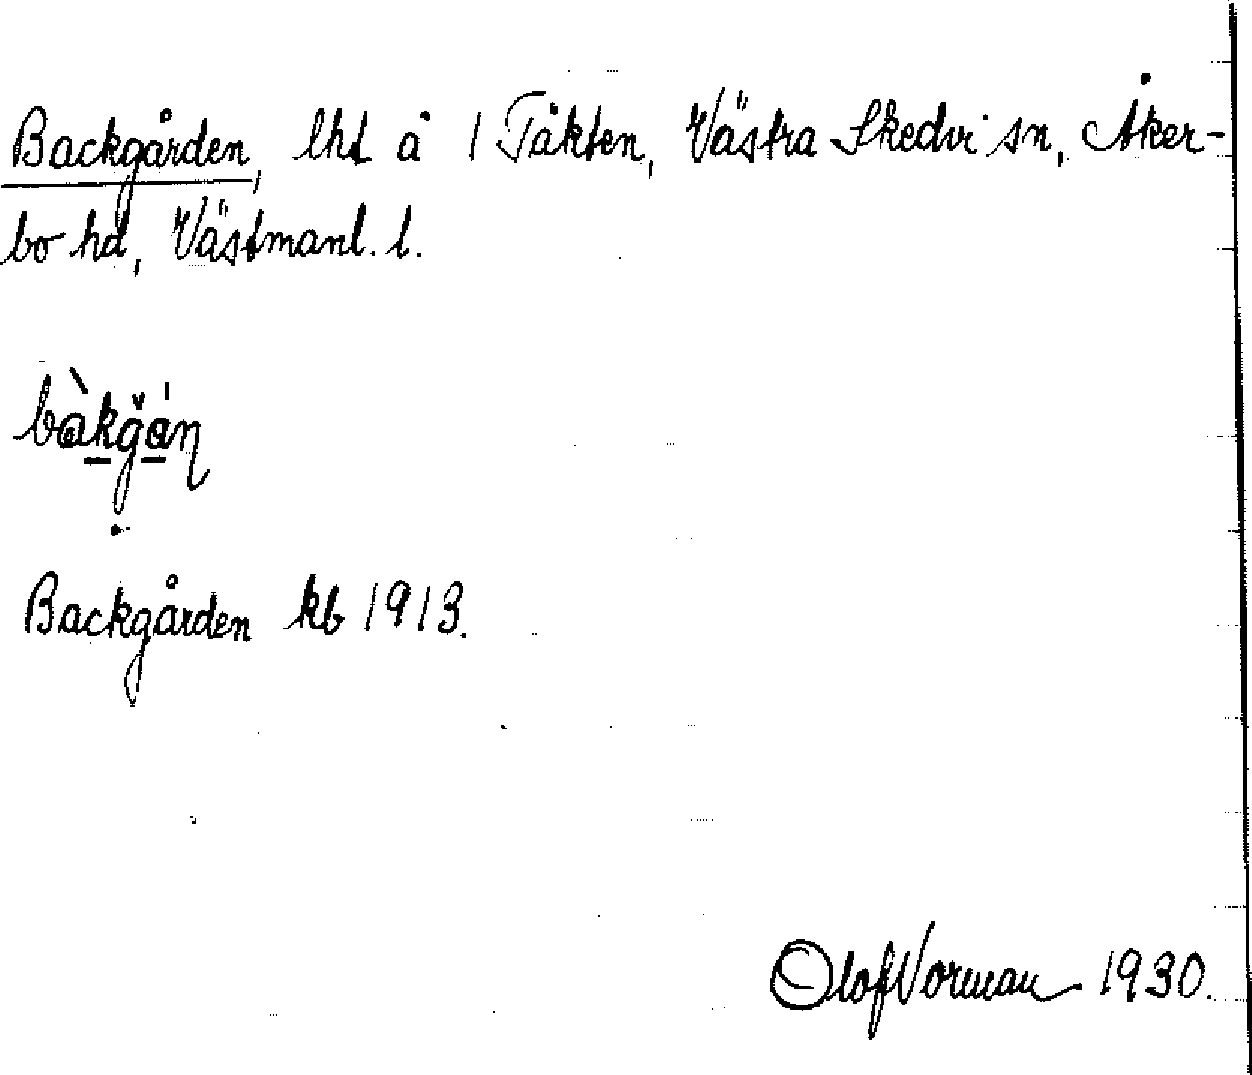 Backgården, lht å 1 Täkten, Västra Skedvi sn, Åker-
bo hd, Västmanl. l.
Backgården kb 1913.
Olof Vorman 1930.